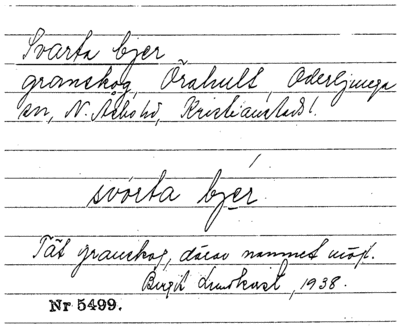 Svarta bjer
granskog, Örahult, Oderljunga
sn, N. Åsbo hd, Kristianstads l.
svórta bjér
Tät granskog, därav namnet uppk.
Birgit Lundkvist, 1938.
Nr 5499.